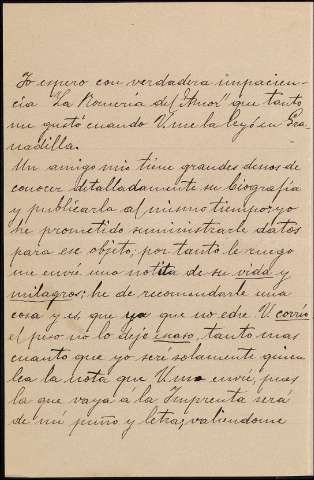 Yo espero con verdadera impacien-
cia "La Romería del Amor" que tanto
me gustó cuando V. me la leyó en Gra-
nadilla.
Un amigo mio tiene grandes deseos de
conocer detalladamente su biografía
y publicarla al mismo tiempo: yo
he prometido suministrarle datos
para ese objeto; por tanto le ruego
me envié una notita de su vida y
milagros; he de recomendarle una
cosa y es, que ya que no eche V. corrio
el peso no lo deje escaso, tanto mas
cuanto que yo seré solamente quien
lea la nota que V. me envié, pues
la que vaya á la Imprenta será
de mi puño y letra; valiendome